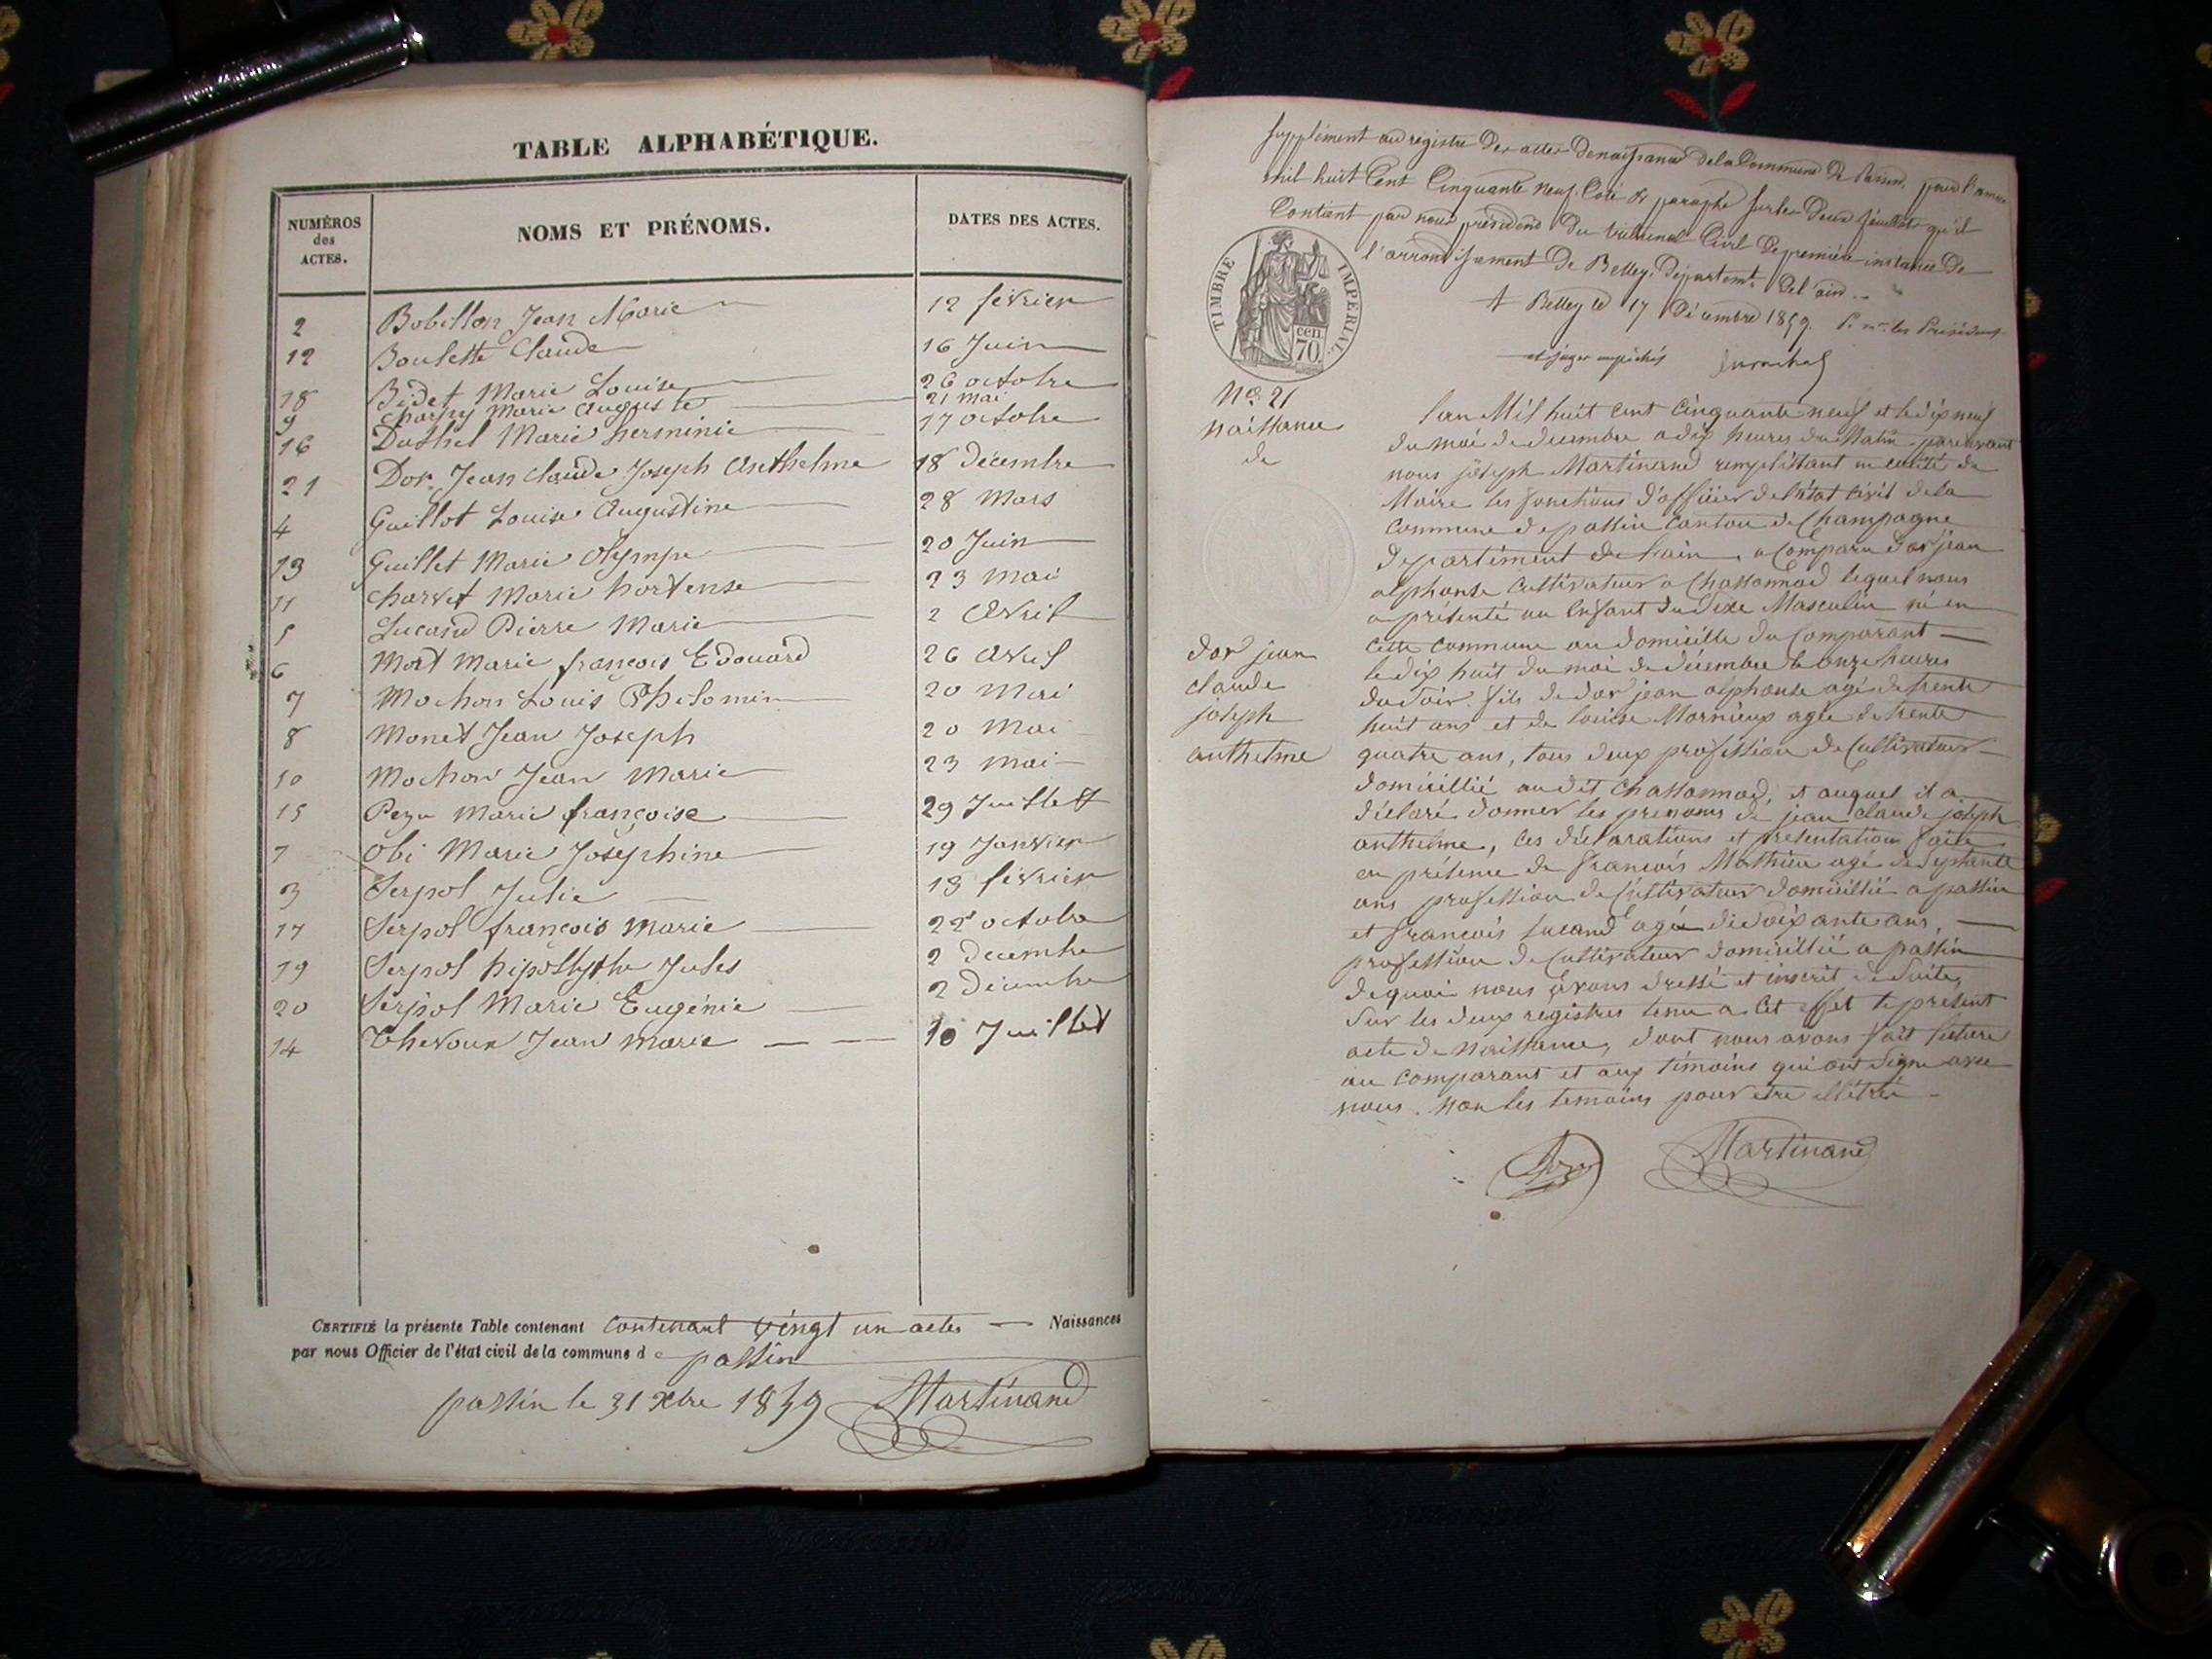 TABLE ALPHABÉTIQUE.
NUMÉROS des ACTES. NOMS ET PRÉNOMS. DATES DES ACTES.
2 Bobillon Jean Marie 12 février
12 Boulette Claude 16 Juin
18 Bidet Marie Louise 26 octobre
9 Charpy Marie Auguste 21 mai
16 Duthel Marie herminie 17 octobre
21 Dor Jean Claude Joseph Anthelme 18 décembre
4 Guillot Louise Augustine 28 Mars
13 Guillet Marie Olympe 20 Juin
11 Charvet Marie hortense 23 mai
5 Lucand Pierre Marie 2 Avril
6 Mort Marie françois Edouard 26 Avril
7 Mochon Louis Philomin 20 Mai
8 Monet Jean Joseph 20 Mai
10 Mochon Jean Marie 23 mai
15 Peza Marie françoise 29 Juillet
1 Obi Marie Joséphine 19 Janvier
3 Serpol Julie 13 février
17 Serpol françois Marie 22 octobre
19 Serpol hipollythe Jules 2 décembre
20 Serpol Marie Eugénie 2 Décembre
14 Thevoux Jean Marie 10 Juillet
CERTIFIÉ la présente Table contenant contenant vingt un actes Naissances
par nous Officier de l'état civil de la commune de passin
passin le 31 Xbre 1859 Martinand
Supplément au registre des actes de naissance de la Commune de Passin, pour l'année
mil huit Cent Cinquante neuf. Coté & paraphé sur les deux feuillets qu'il
Contient par nous président du tribunal Civil de première instance de
l'arrondissement de Belley, départemt. de l'ain.
A Belley le 17 Décembre 1859. P. mr. les Président
et juges empêchés
TIMBRE IMPERIAL.
cen
70.
No. 21
naissance
de
dor jean
claude
joseph
anthelme
l'an Mil huit cent cinquante neuf et le dix neuf
du moi de decembre a dix heures du Matin pardevant
nous joseph Martinand remplissant en calité de
Maire les fonctions d'officier de l'état civil de la
commune de passin canton de Champagne
département de l'ain, a Comparu dor jean
alphonse cultivateur a Chassonnod lequel nous
a présenté un Enfant du Sexe Masculin né en
cette commune au domicille du Comparant
le dix huit du moi de décembre le onze heures
du Soir. fils de dor jean alphonse agé de trente
huit ans et de louise Mornieux agée de trente
quatre ans, tous deux profession de Cultivateur
domicillié au dit Chassonnod, et auquel il a
déclaré donner les prenoms de jean claude joseph
anthelme, ces déclarations et presentation faite
en présence de françois Mathieu agé de Septante
ans profession de Cultivateur domicillié a passin
et françois lucand agé de Soixante ans,
profession de Cultivateur domicillié a passin
de quoi nous avons dressé et inscrit de Suite,
Sur les deux registres tenu a cet effet le présent
acte de naissance, dont nous avons fait lecture
au comparant et aux témoins qui ont Signe avec
nous. non les temoins pour être illétrés
Dor Martinand